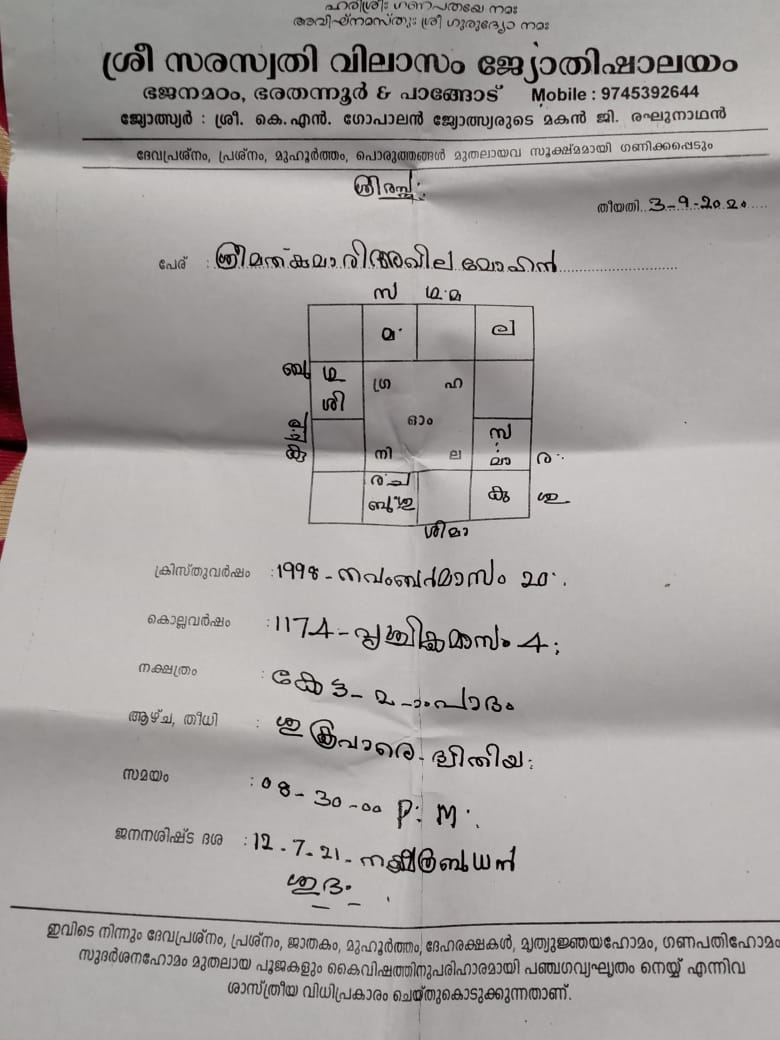 ഹരിശ്രീഃ ഗണപതയേ നമഃ
അവിഘ്നമസ്തുഃ ശ്രീ ഗുരുഭ്യോ നമഃ
ശ്രീ സരസ്വതി വിലാസം ജ്യോതിഷാലയം
ഭജനമഠം, ഭരതന്നൂർ & പാങ്ങോട് Mobile : 9745392644
ജ്യോത്സ്യർ : ശ്രീ. കെ.എൻ. ഗോപാലൻ ജ്യോത്സ്യരുടെ മകൻ ജി. രഘുനാഥൻ
ദേവപ്രശ്നം, പ്രശ്നം, മുഹൂർത്തം, പൊരുത്തങ്ങൾ മുതലായവ സൂക്ഷ്മമായി ഗണിക്കപ്പെടും
ശ്രീരസ്തു:
തീയതി 3-9-2020
പേര് : ശ്രീമത് കുമാരി അഖില മോഹൻ
സ ഗു.മ
മ ല
ബു ഗു
ശി
ഗ്ര ഹ
ഓം
നി ല
സ
മാ ര
ര ച
ബു ശു
കു ശു
ശിമാ
ക്രിസ്തുവർഷം : 1998 - നവംബർമാസം 20
കൊല്ലവർഷം : 1174 - വൃശ്ചികമാസം 4;
നക്ഷത്രം : കേട്ട - 2 -ാംപാദം
ആഴ്ച, തീധി : ശുക്രവാരെ ദ്വിതിയ:
സമയം : 08 - 30 - 00 P: M:
ജനനശിഷ്ട ദശ : 12 - 7 - 21 -
ശുഭം
ഇവിടെ നിന്നും ദേവപ്രശ്നം, പ്രശ്നം, ജാതകം, മുഹൂർത്തം, ദേഹരക്ഷകൾ, മൃത്യുഞ്ജയഹോമം, ഗണപതിഹോമം
സുദർശനഹോമം മുതലായ പൂജകളും കൈവിഷത്തിനുപരിഹാരമായി പഞ്ചഗവ്യഘൃതം നെയ്യ് എന്നിവ
ശാസ്ത്രീയ വിധിപ്രകാരം ചെയ്തുകൊടുക്കുന്നതാണ്.